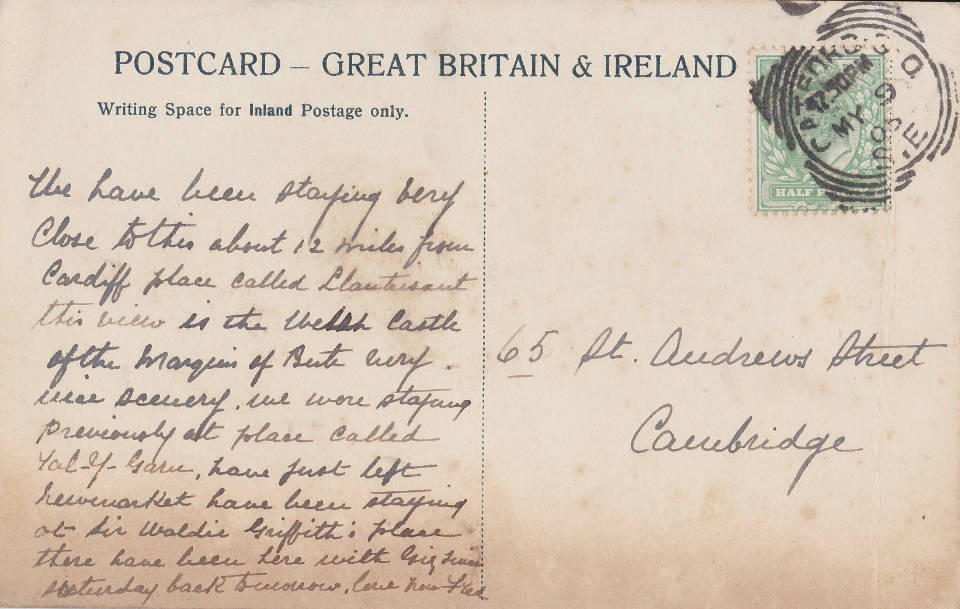 POSTCARD – GREAT BRITAIN & IRELAND
Writing Space for Inland Postage only.
We have been staying very
Close to this about 12 miles from
Cardiff place called Llantrisant
this view is the Welsh Castle
of the Marquis of Bute very
nice scenery. we were staying
previously at place called
Tal-Y-Garn, have just left
Newmarket have been staying
at Sir Waldie Griffith's place
there have been here with since
saturday back tomorrow. love from Fred
HALF
MY 9
65 St. Andrews Street
Cambridge